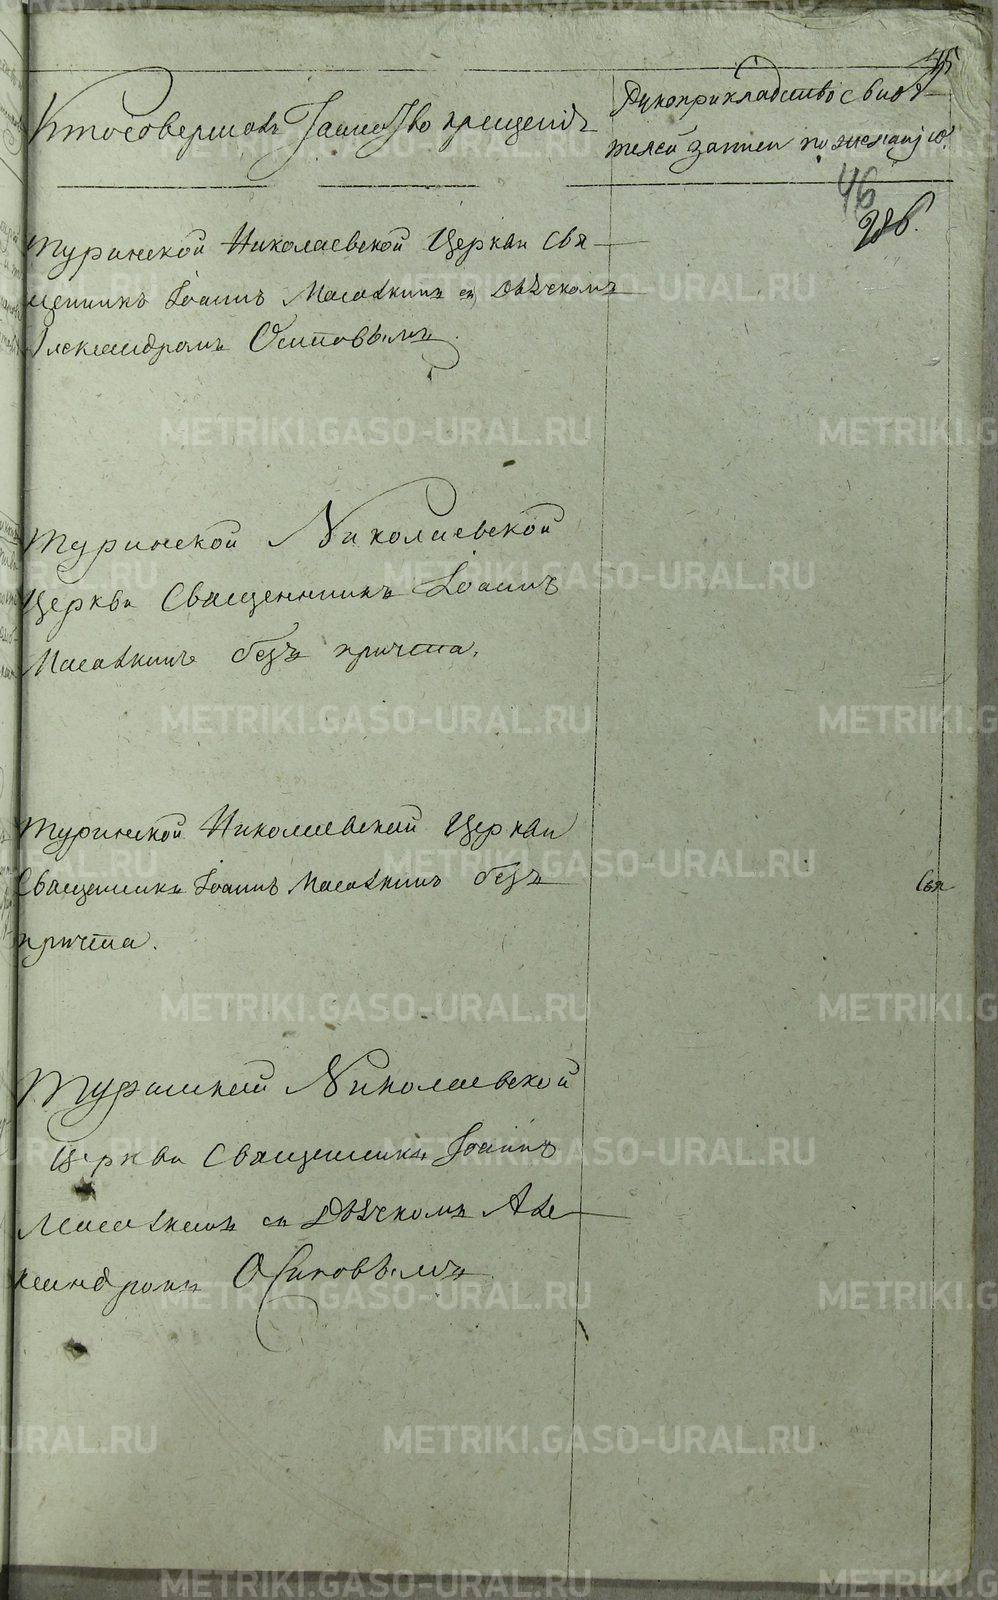 45
Кто совершалъ Таинство крещенія
Рукоприкладство свидѣ-
телей записи по желанію.
46
286.
Туринской Николаевской Церкви Свя-
щенникъ Іоаннъ съ Дьячкомъ
Александромъ Осиповымъ.
Туринской Николаевской
Церкви Священникъ Іоаннъ
безъ причта.
Туринской Николаевской Церкви
Священникъ Іоаннъ безъ
причта.
Свя
Туринской Николаевской
Церкви Священникъ Іоаннъ
съ Дьячкомъ Але-
ксандромъ Осиповымъ
METRIKI.GASO-URAL.RU